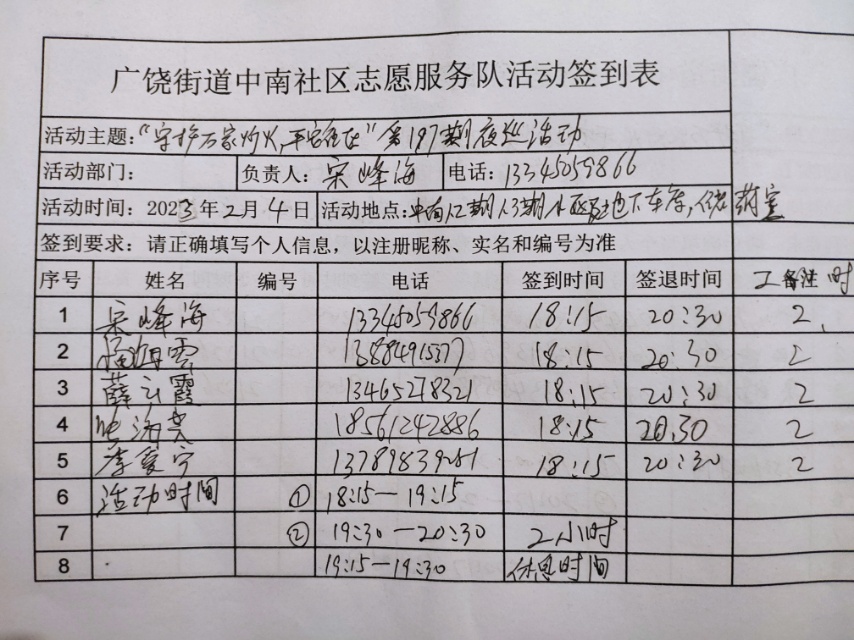 广饶街道中南社区志愿服务队活动签到表
活动主题："守护万家灯火,平安社区"第197期夜巡活动
活动部门： 负责人：宋峰海 电话：13345059866
活动时间：2023年2月4日 活动地点：中南1.2期1.3期小区及地下车库,
签到要求：请正确填写个人信息，以注册昵称、实名和编号为准
序号 姓名 编号 电话 签到时间 签退时间 工备注时
1 宋峰海 13345059866 18:15 20:30 2
2 13884915377 18:15 20:30 2
3 薛云霞 13465278321 18:15 20:30 2
4 18561242886 18:15 20:30 2
5 李爱宁 18:15 20:30 2
6 活动时间 ① 18:15—19:15
7 ② 19:30—20:30 2小时
8 19:15—19:30 休息时间